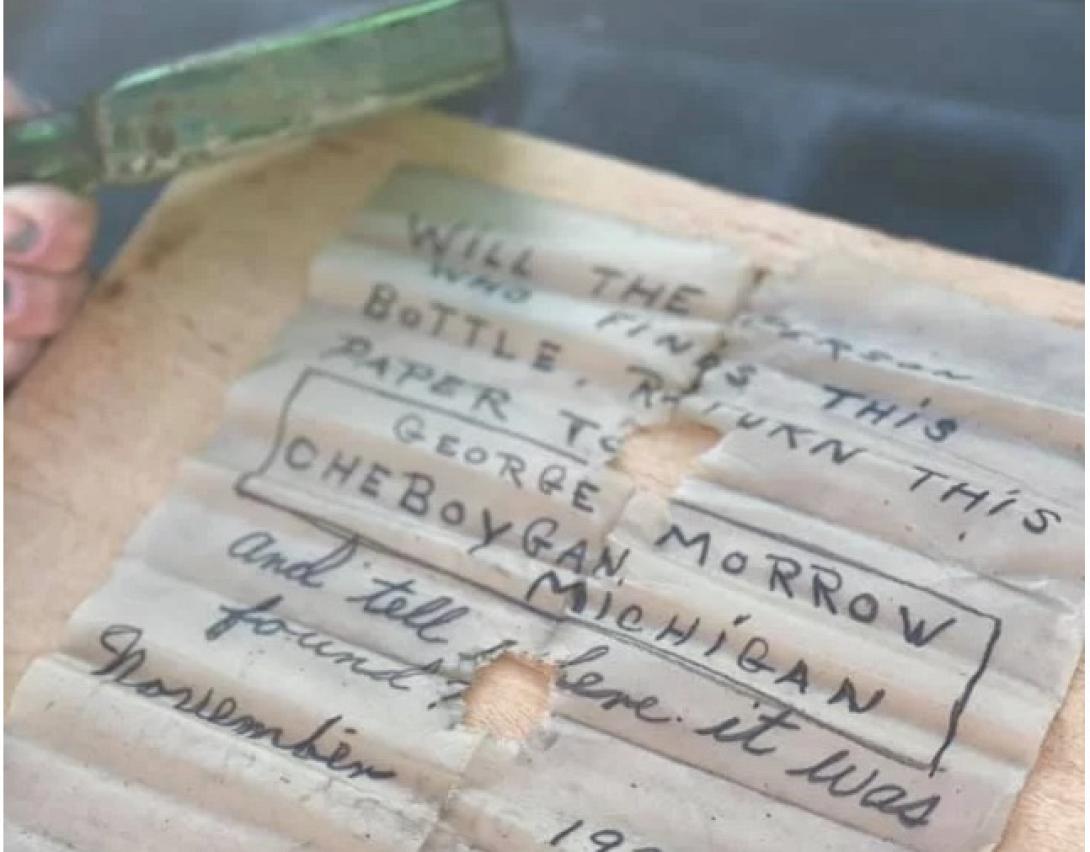 WILL THE PERSON
WHO FINDS THIS
BOTTLE, RETURN THIS
PAPER TO
GEORGE MORROW
CHEBOYGAN
MICHIGAN
and tell where it was
found?
November